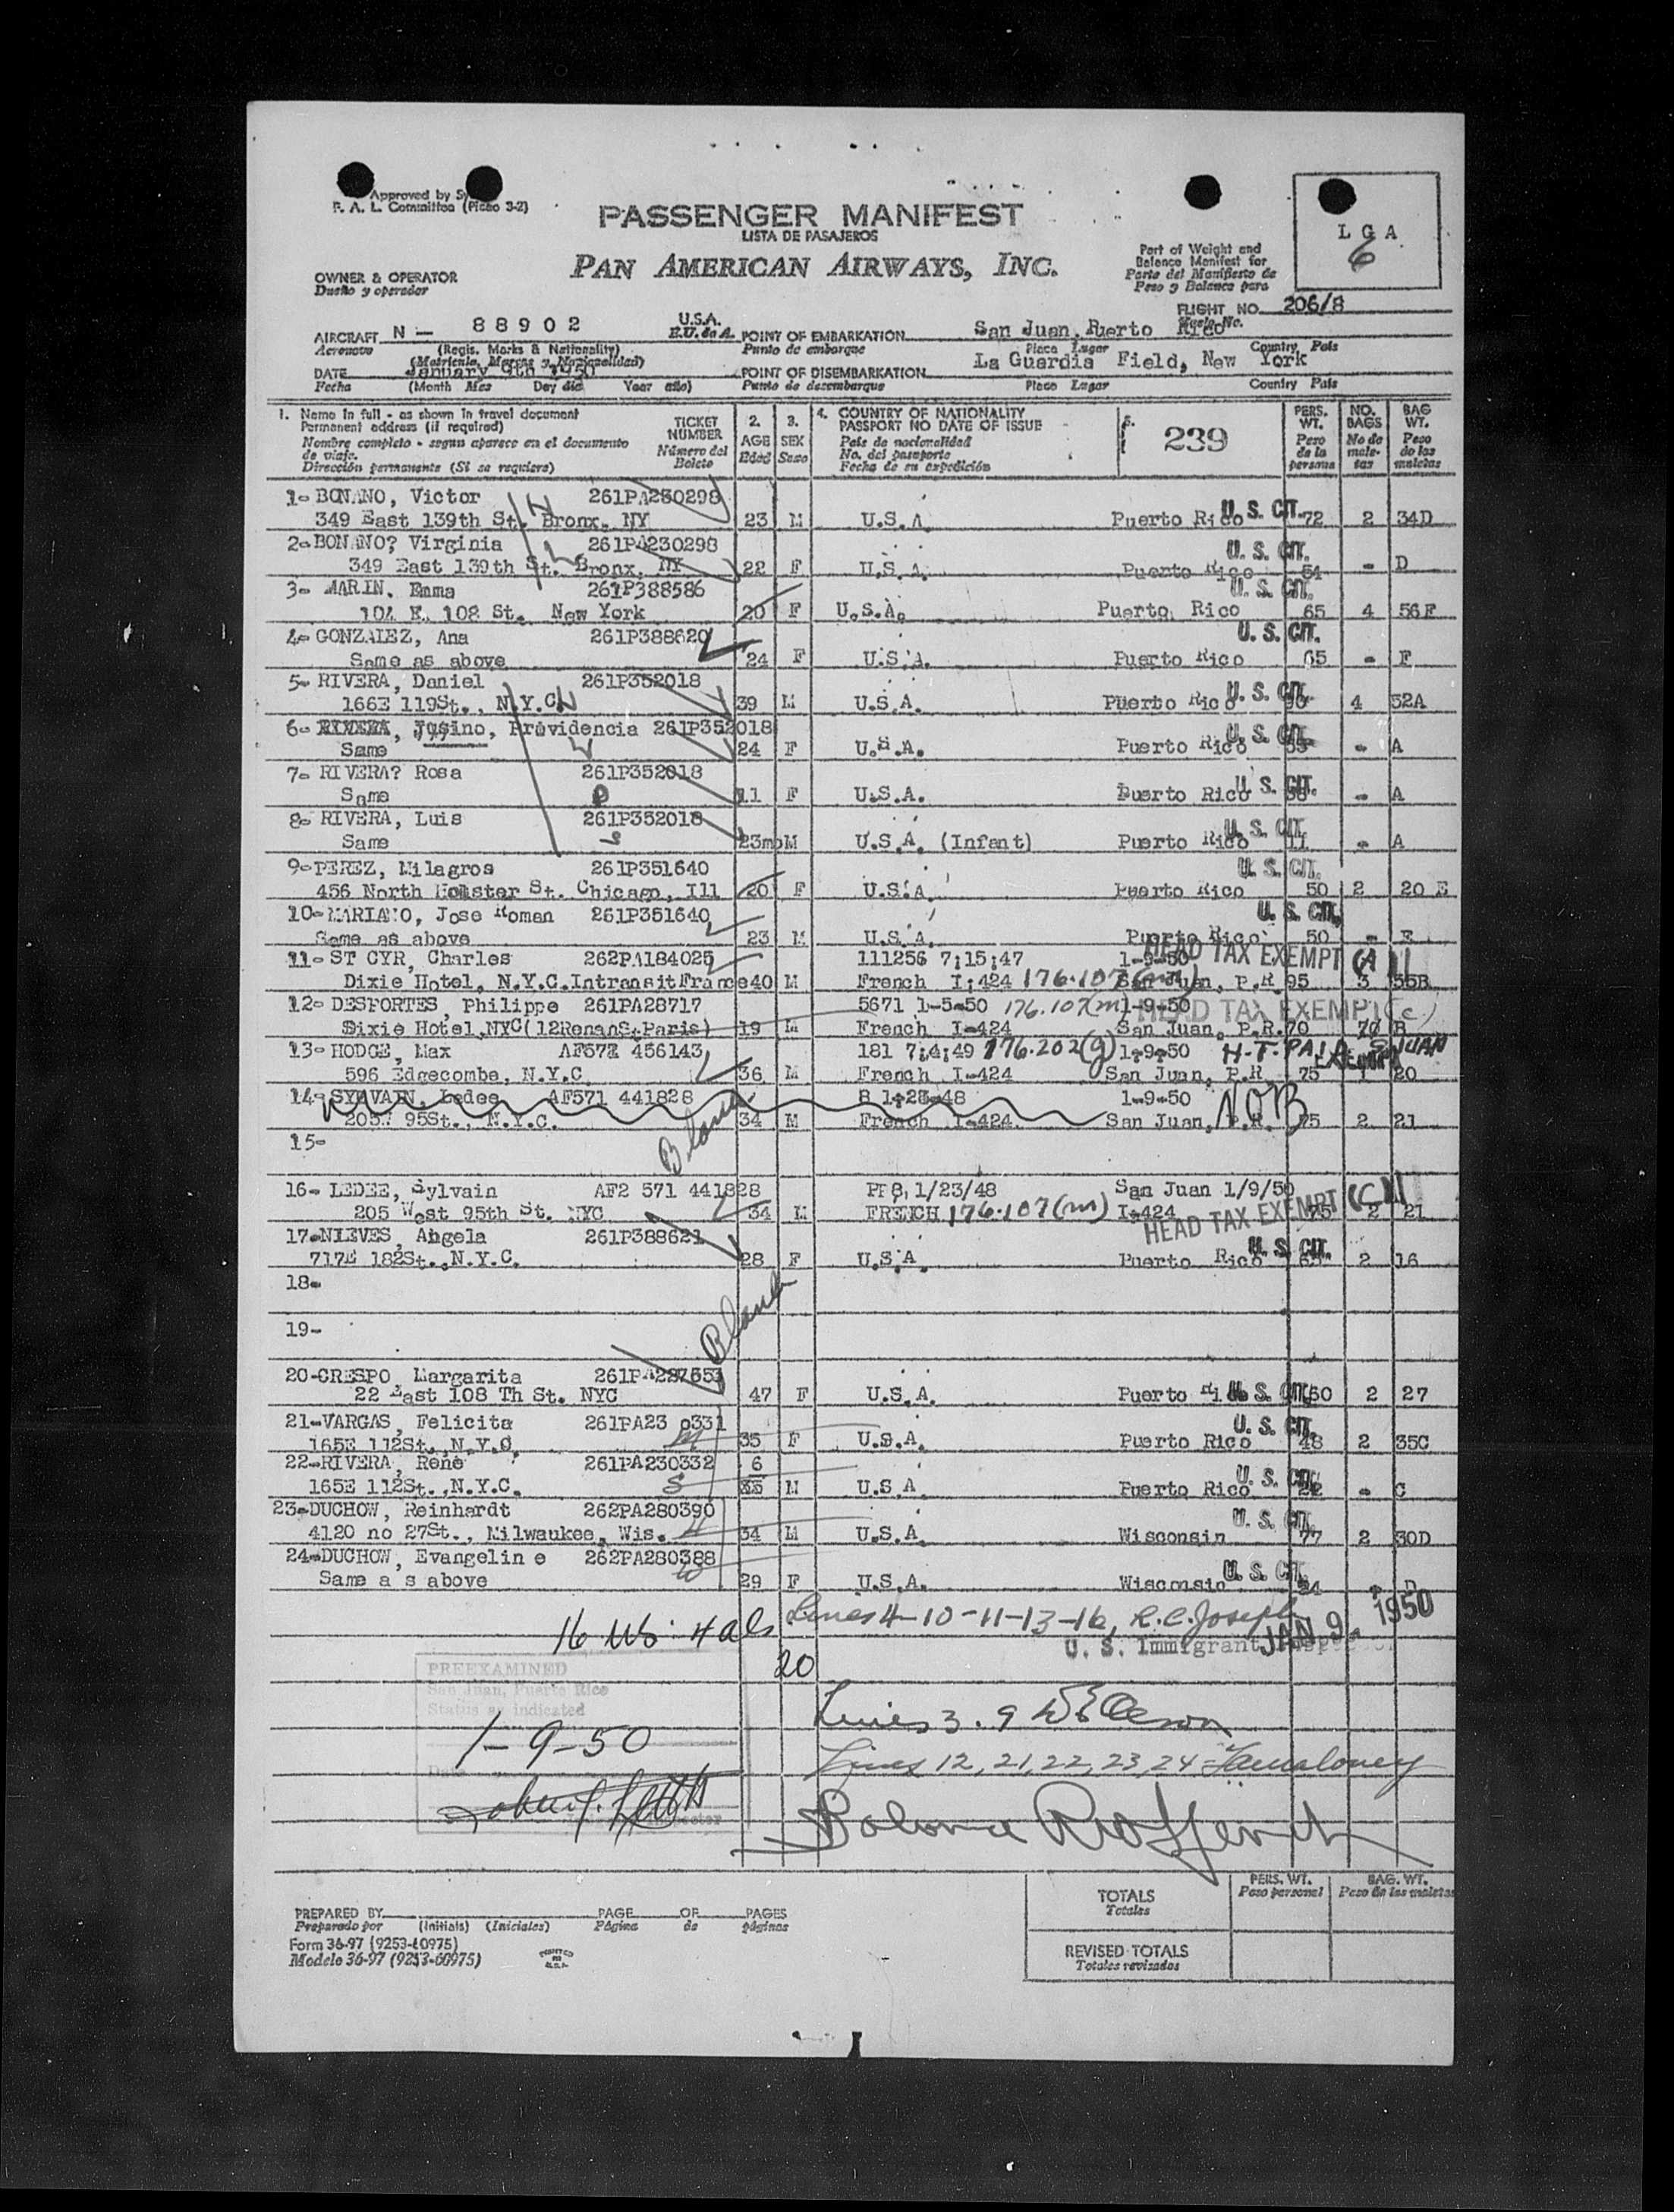 Approved by
F. A. L. Committee (Picao 3-2)
PASSENGER MANIFEST
LISTA DE PASAJEROS
PAN AMERICAN AIRWAYS, INC.
L G A
6
Part of Weight and
Balance Manifest for
Parte del Manifiesto de
Peso y Balance para
OWNER & OPERATOR
Dueño y operador
FLIGHT NO. 206/8
Vuelo No.
AIRCRAFT N - 88902 U.S.A. POINT OF EMBARKATION San Juan, Puerto Rico
Aeronave (Regis. Marks & Nationality) E.U. de A. Punto de embarque Place Lugar Country Pais
(Matricula, Marcas y Nacionalidad)
DATE January 9th 1950 POINT OF DISEMBARKATION La Guardia Field, New York
Fecha (Month Mes Day dia Year año) Punto de desembarque Place Lugar Country Pais
1. Name in full - as shown in travel document
Permanent address (if required)
Nombre completo - segun aparece en el documento
de viaje.
Dirección permanente (Si se requiere)
TICKET NUMBER
Número del Boleto
2. AGE Edad
3. SEX Sexo
4. COUNTRY OF NATIONALITY
PASSPORT NO DATE OF ISSUE
Pais de nacionalidad
No. del pasaporte
Fecha de su expedición
5. 239
PERS. WT. Peso de la persona
NO. BAGS No de maletas
BAG WT. Peso de las maletas
1- BONANO, Victor 261PA230298
349 East 139th St. Bronx. NY 23 M U.S.A. Puerto Rico U. S. CIT. 72 2 34D
2- BONANO? Virginia 261PA230298 U. S. CIT.
349 East 139th St. Bronx. NY 22 F U.S.A. Puerto Rico 54 - D
3- MARIN. Emma 261P388586 U. S. CIT.
104 E. 108 St. New York 20 F U.S.A. Puerto Rico 65 4 56F
4- GONZALEZ, Ana 261P388620 U. S. CIT.
Same as above 24 F U.S.A. Puerto Rico 65 - F
5- RIVERA, Daniel 261P352018
166E 119St., N.Y.C. 39 M U.S.A. Puerto Rico U. S. CIT. 4 52A
6- Jusino, Providencia 261P352018
Same 24 F U.S.A. Puerto Rico U. S. CIT. - A
7- RIVERA? Rosa 261P352018
Same 11 F U.S.A. Puerto Rico U. S. CIT. - A
8- RIVERA, Luis 261P352018
Same 23mo M U.S.A. (Infant) Puerto Rico U. S. CIT. 11 - A
9- PEREZ, Milagros 261P351640 U. S. CIT.
456 North St. Chicago, Ill 20 F U.S.A. Puerto Rico 50 2 20 E
10- MARIANO, Jose Roman 261P351640 U. S. CIT.
Same as above 23 M U.S.A. Puerto Rico 50 - E
11- ST CYR, Charles 262PA184025 111256 7;15;47 1-9-50 HEAD TAX EXEMPT (A)
Dixie Hotel, N.Y.C. Intransit France 40 M French I;424 176.107(m) San Juan, P.R. 95 3 55B
12- DESPORTES, Philippe 261PA28717 5671 1-5-50 176.107(m) 1-9-50 HEAD TAX EXEMPT (c)
Dixie Hotel, NYC (12RenanSt. Paris) 19 M French I-424 San Juan, P.R. 70 B
13- HODGE, Max AF571 456143 181 7;4;49 176.202(g) 1-9-50 H.T. PAID S JUAN
596 Edgecombe, N.Y.C. 36 M French I-424 San Juan, P.R. 75 1 20
14- SYLVAIN, Ledee AF571 441828 8 1-23-48 1-9-50
205W 95St., N.Y.C. 34 M French I-424 San Juan, P.R. 75 2 21 NOB
15- Blank
16- LEDEE, Sylvain AF2 571 441828 PP8, 1/23/48 San Juan 1/9/50
205 West 95th St. NYC 34 M FRENCH 176.107(m) I-424 HEAD TAX EXEMPT (C) 75 2 21
17- NIEVES, Angela 261P388621
717E 182St., N.Y.C. 28 F U.S.A. Puerto Rico U. S. CIT. 65 2 16
18-
Blank
19-
20- CRESPO, Margarita 261PA287653
22 East 108 Th St. NYC 47 F U.S.A. Puerto Rico U. S. CIT. 50 2 27
21- VARGAS, Felicita 261PA23 0331 U. S. CIT.
165E 112St., N.Y.C. M 35 F U.S.A. Puerto Rico 48 2 35C
22- RIVERA, Rene 261PA230332 6 U. S. CIT.
165E 112St., N.Y.C. S M U.S.A. Puerto Rico 22 - C
23- DUCHOW, Reinhardt 262PA280390 U. S. CIT.
4120 no 27St., Milwaukee, Wis. 34 M U.S.A. Wisconsin 77 2 30D
24- DUCHOW, Evangelin e 262PA280388
Same a s above 29 F U.S.A. Wisconsin U. S. CIT. D
16 US: 4 als
20
Lines 4-10-11-13-16, R.C. Joseph
U. S. Immigrant Inspector
JAN 9 1950
PREEXAMINED
San Juan, Puerto Rico
Status as indicated
1-9-50
Date
Inspector
Lines 3. 9
Lines 12, 21, 22, 23, 24
TOTALS
Totales
PERS. WT.
Peso personal
BAG. WT.
Peso de las maletas
REVISED TOTALS
Totales revisados
PREPARED BY PAGE OF PAGES
Preparado por (Initials) (Iniciales) Página de páginas
Form 36-97 (9253-60975)
Modelo 36-97 (9253-60975)
PRINTED IN U.S.A.